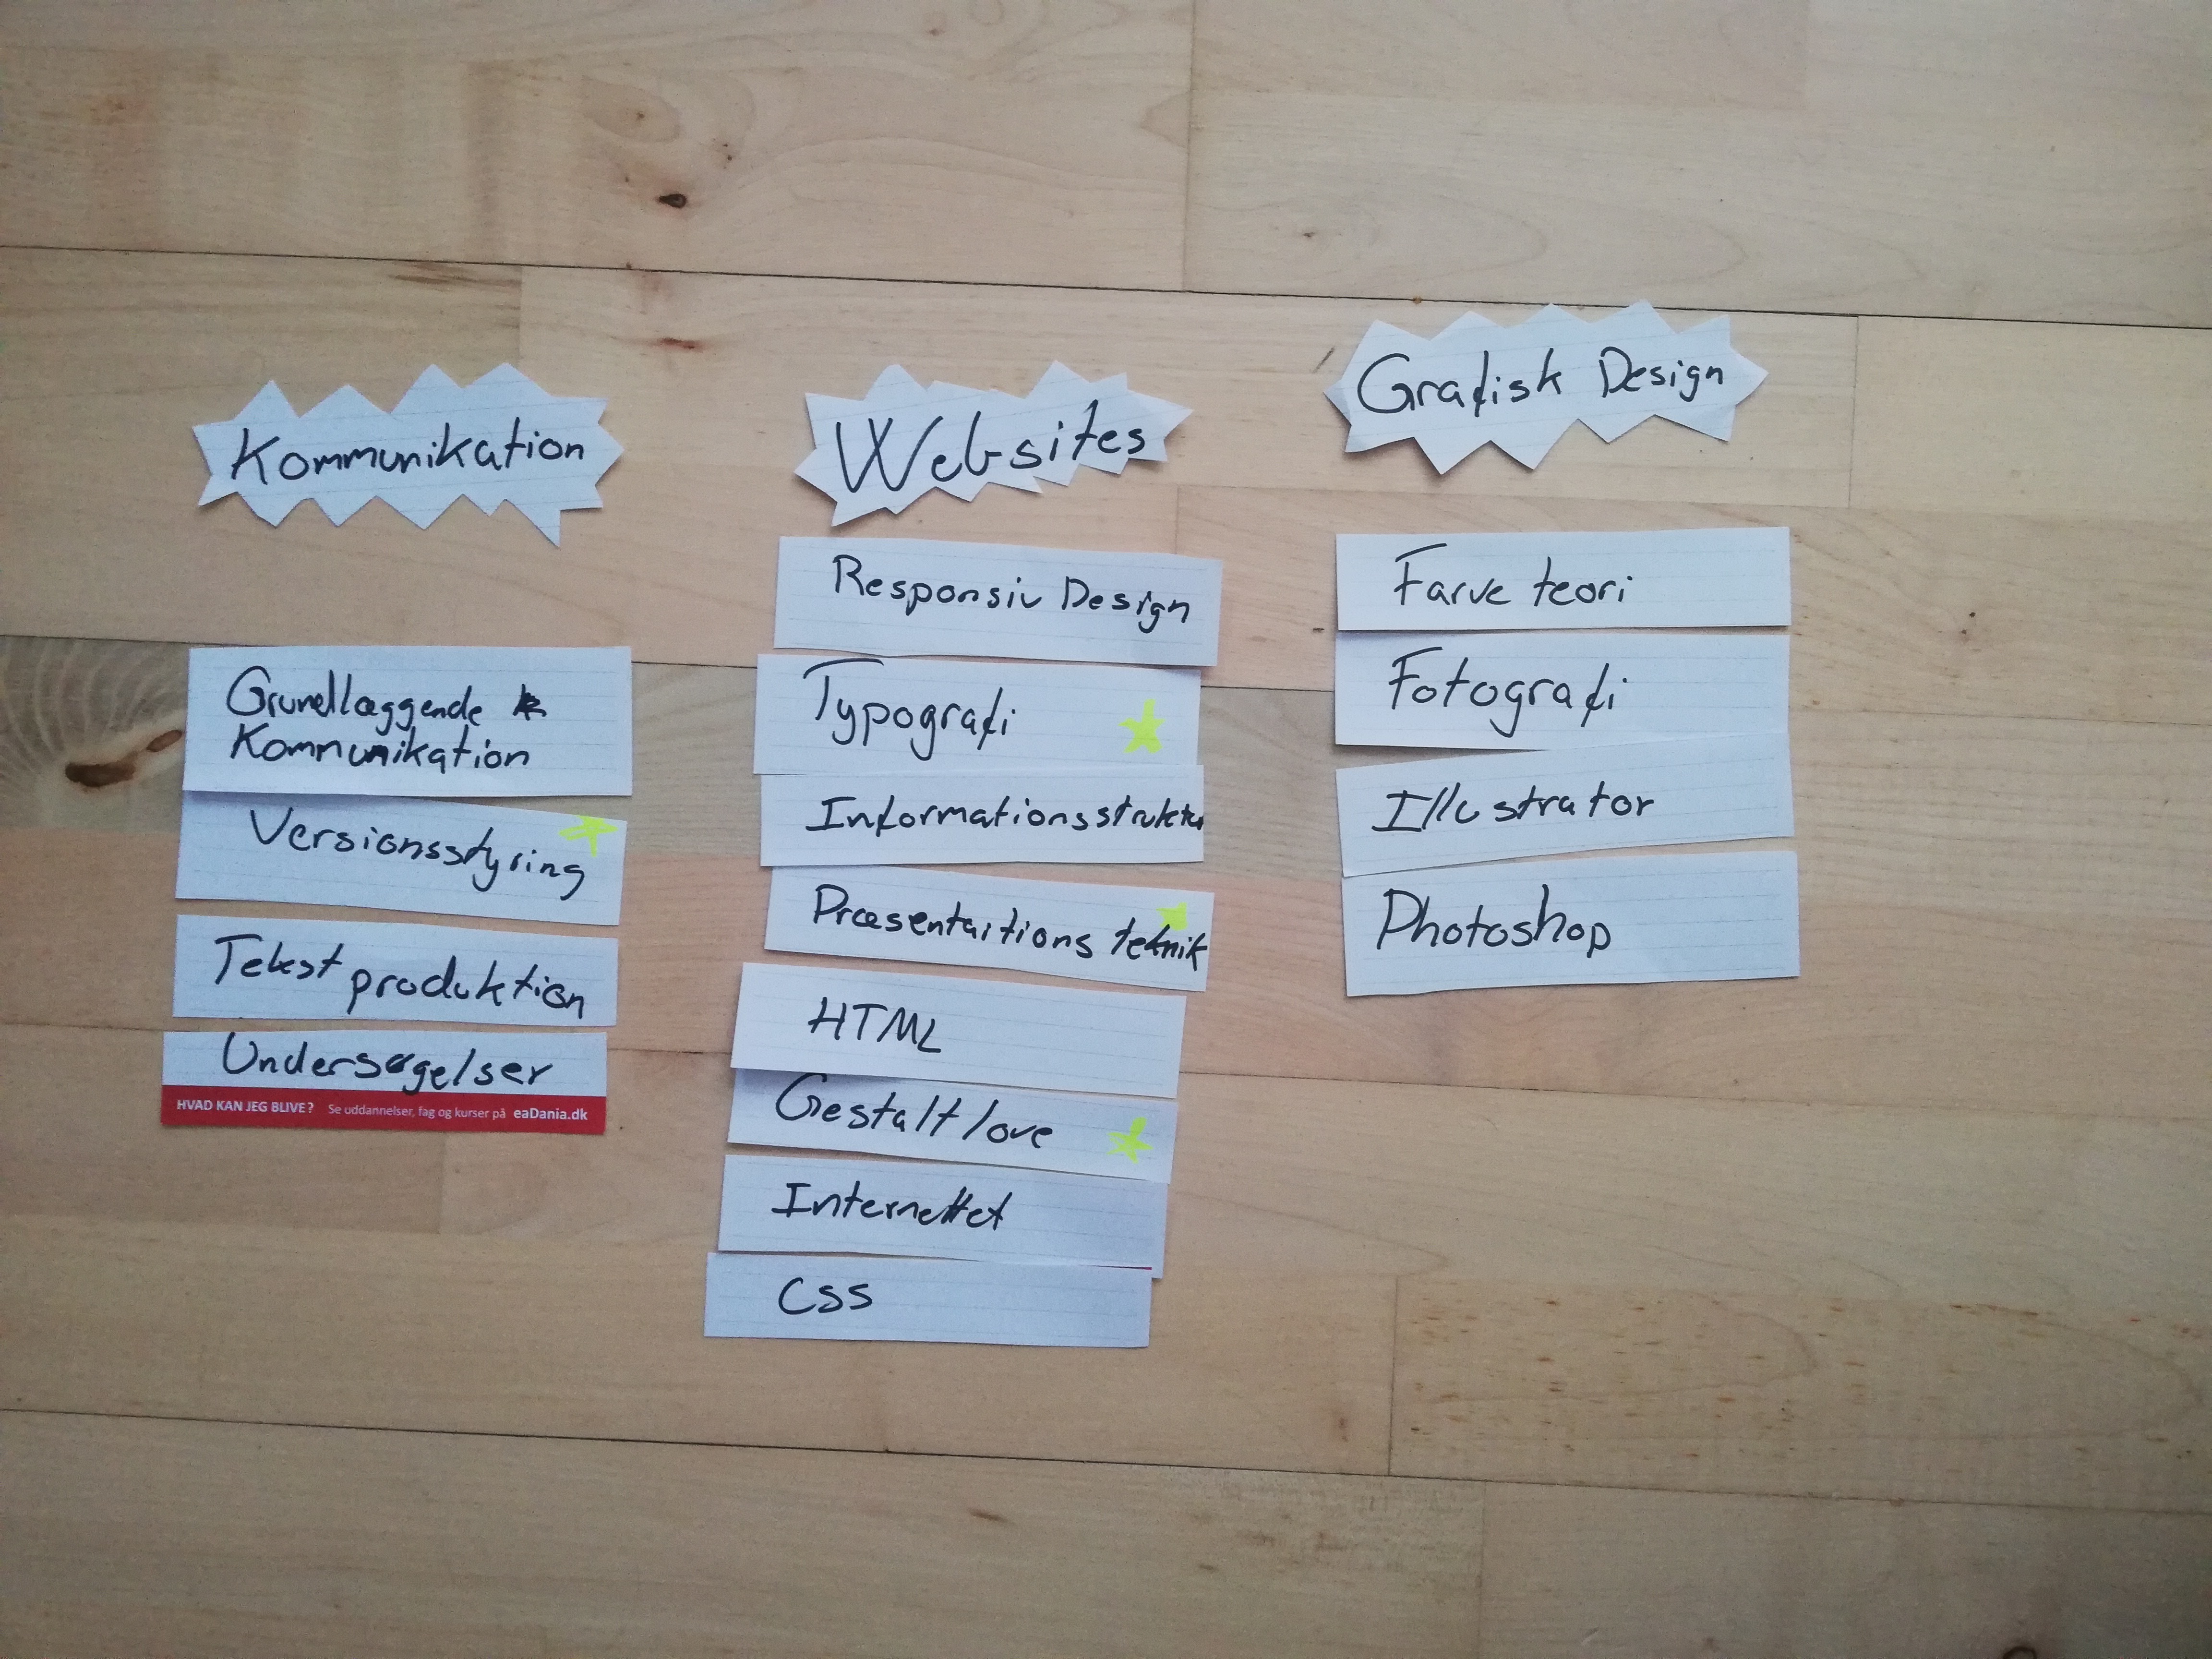 Kommunikation
Grundlæggende
Kommunikation
Versionsstyring
Tekst produktion
Undersøgelser
HVAD KAN JEG BLIVE? Se uddannelser, fag og kurser på eaDania.dk
Websites
Responsiv Design
Typografi
Informationsstruktur
Præsentaitions teknik
HTML
Gestalt love
Internettet
CSS
Grafisk Design
Farve teori
Fotografi
Illustrator
Photoshop